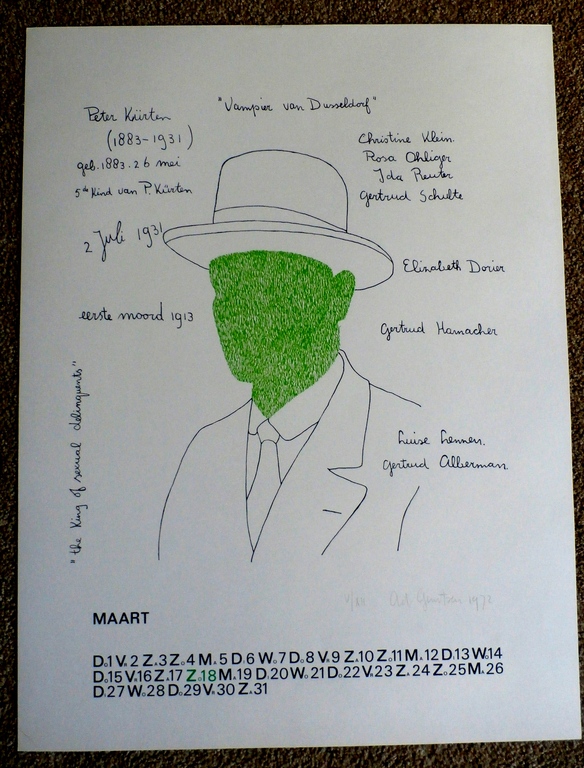 "Vampier van Dusseldorf"
Peter Kürten
(1883-1931)
geb. 1883. 26 mei
5de Kind van P. Kürten
2 Juli 1931
eerste moord 1913
"the King of sexual delinquents"
Christine Klein.
Rosa Ohliger
Ida Reuter
Gertrud Schulte
Elizabeth Dorier
Gertrud Hamacher
Luise Lennen.
Gertrud Alberman
1972
MAART
D.1 V.2 Z.3 Z.4 M.5 D.6 W.7 D.8 V.9 Z.10 Z.11 M.12 D.13 W.14
D.15 V.16 Z.17 Z.18 M.19 D.20 W.21 D.22 V.23 Z.24 Z.25 M.26
D.27 W.28 D.29 V.30 Z.31